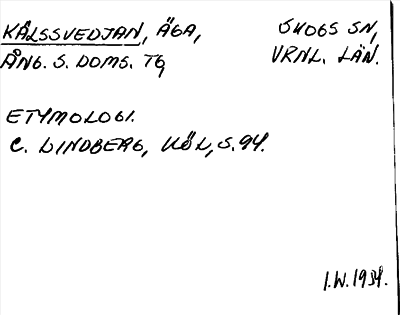 KÅLSSVEDJAN, ÄGA, SKOGS SN,
ÅNG. S. DOMS. TG, VRNL. LÄN.
ETYMOLOGI.
C. LINDBERG, KÖL, S. 94.
I.W. 1934.